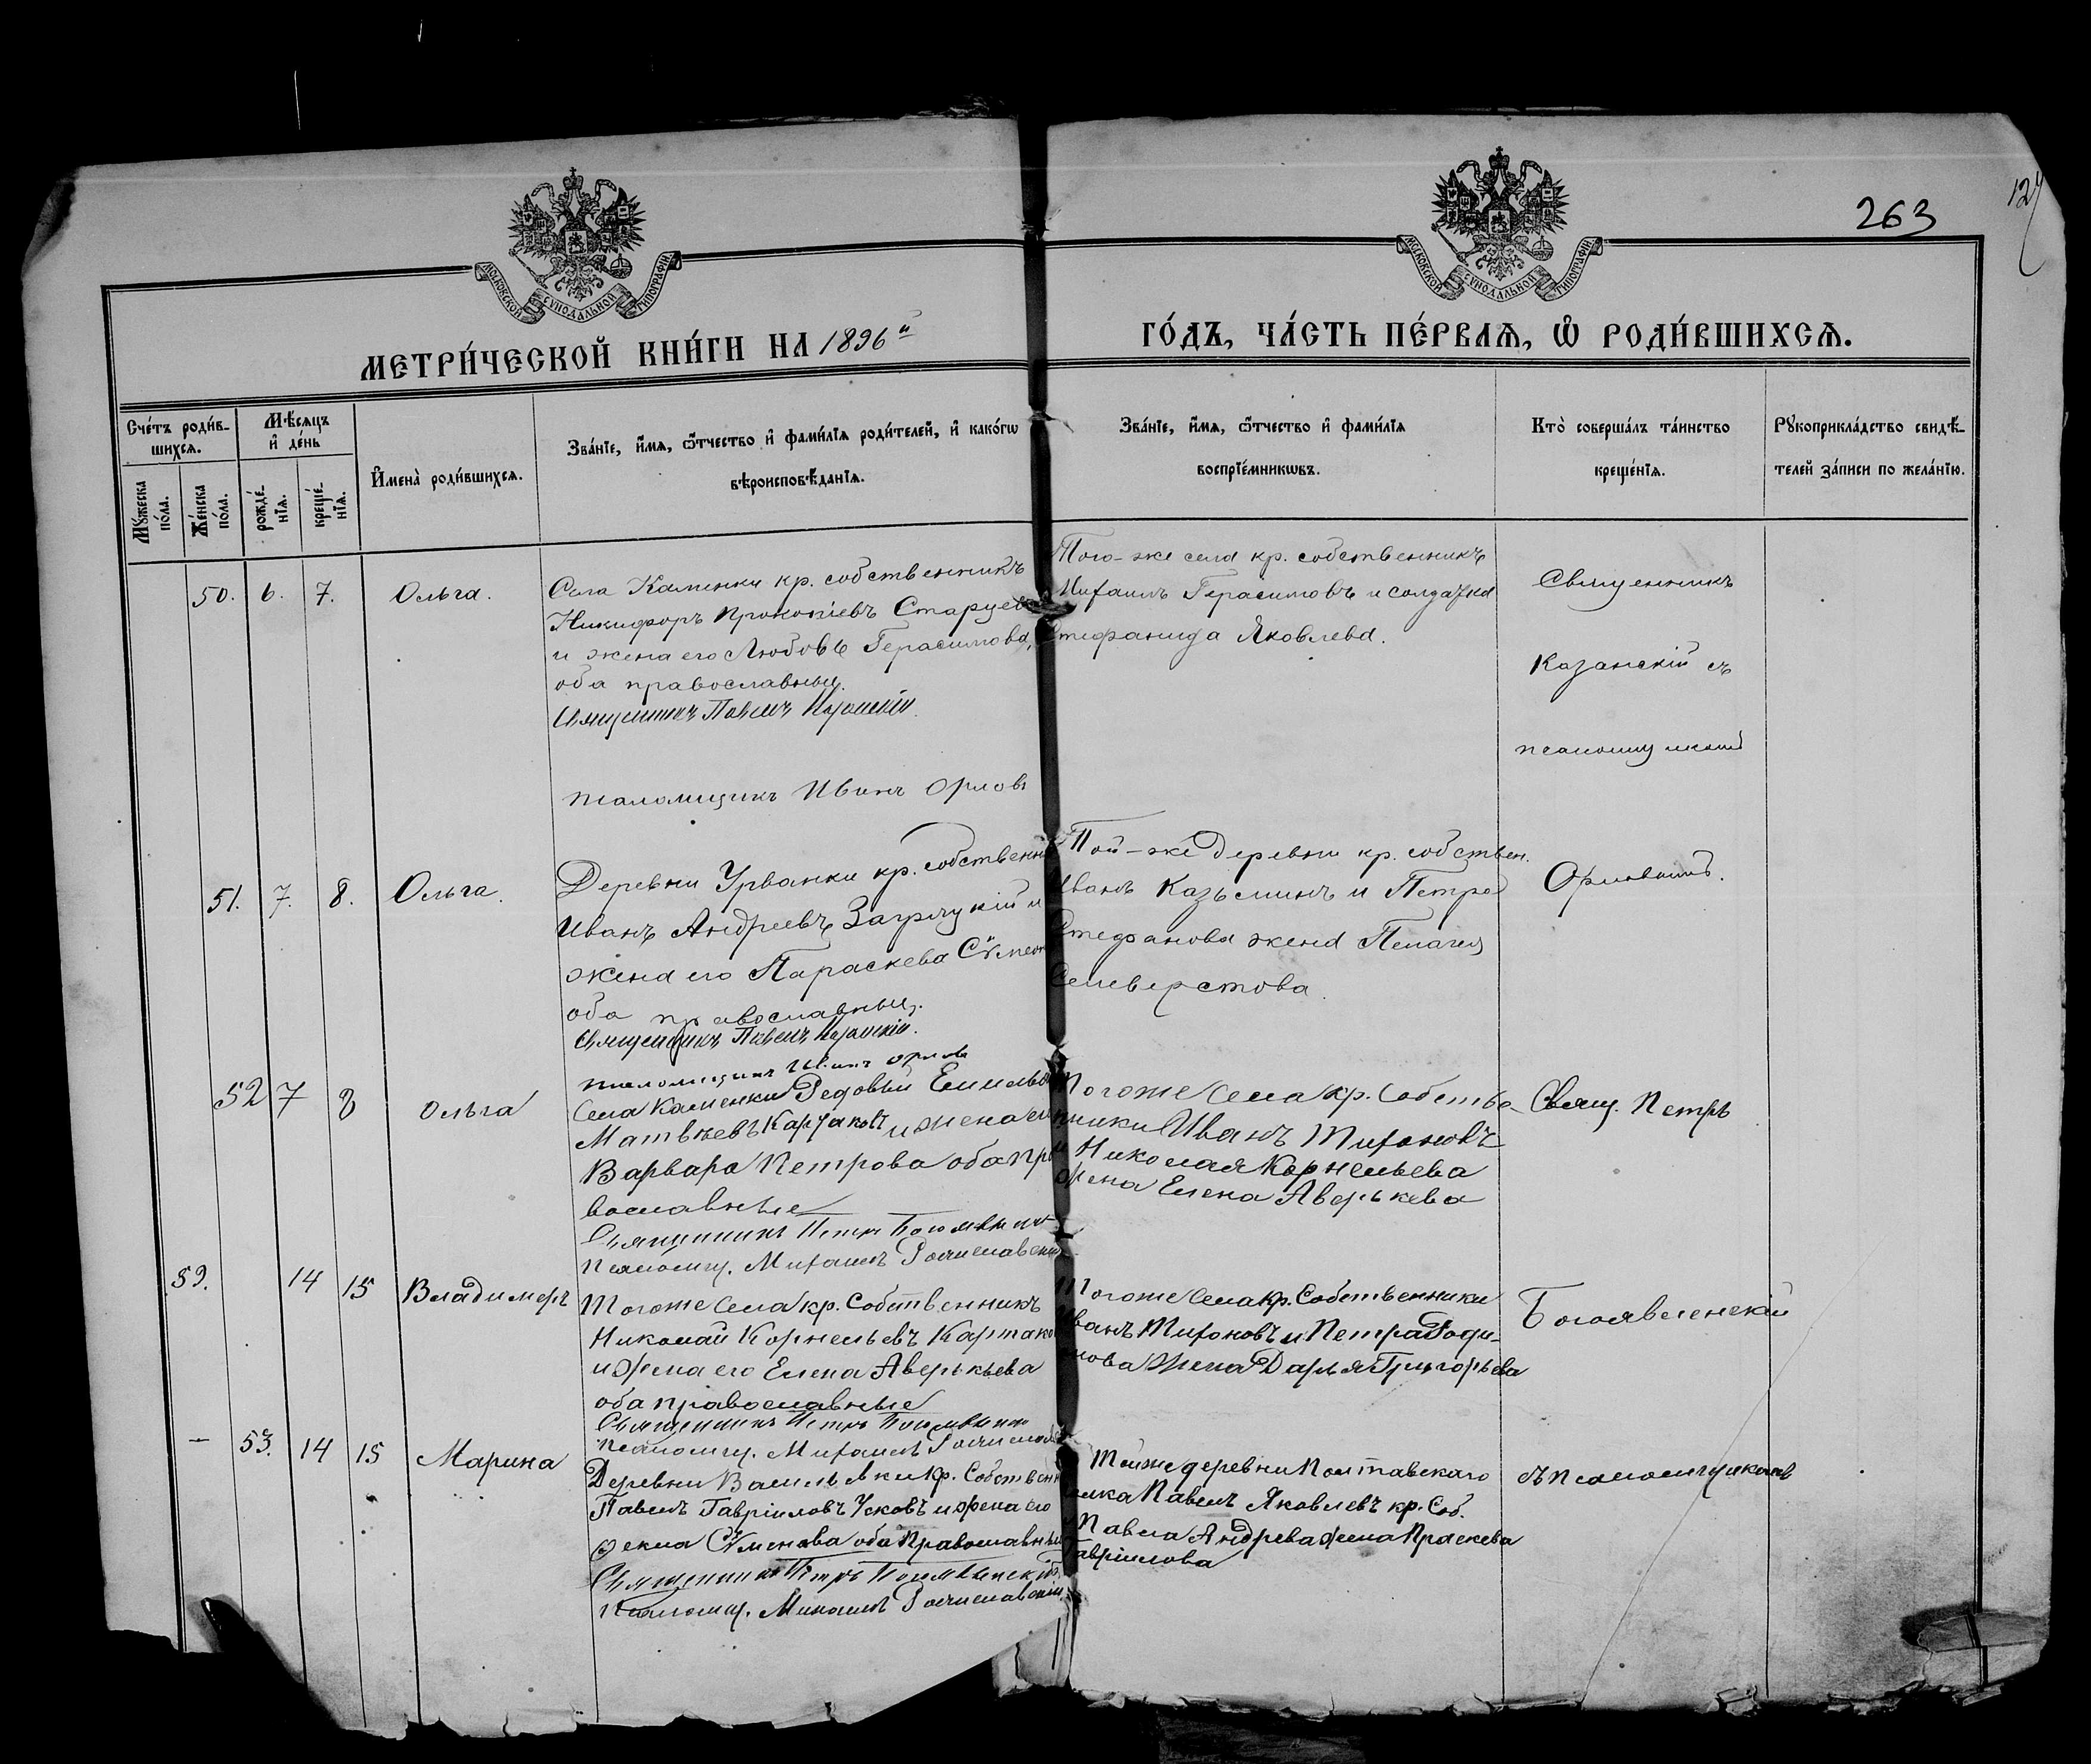 263
127
МОСКОВСКОЙ СѴНОДАЛЬНОЙ ТИПОГРАФІИ
МОСКОВСКОЙ СѴНОДАЛЬНОЙ ТИПОГРАФІИ
МЕТРИ́ЧЕСКОЙ КНИ́ГИ НА 1896й
ГО́ДЪ, ЧА́СТЬ ПЕ́РВАѦ, Ѡ҆ РОДИ́ВШИХСѦ.
Сче́тъ роди́в-
шихсѧ.
Мѣ́сѧцъ
и҆ де́нь
Мꙋ́жеска
по́ла.
Же́нска
по́ла.
рожде́-
нїѧ.
креще́-
нїѧ.
И҆мена̀ роди́вшихсѧ.
Зва́нїе, и҆́мѧ, ѻ҆́тчество и҆ фами́лїѧ роди́телей, и҆ како́гѡ
вѣроисповѣ́данїѧ.
Зва́нїе, и҆́мѧ, ѻ҆́тчество и҆ фами́лїѧ
воспрїе́мникѡвъ.
Кто̀ соверша́лъ та́инство
креще́нїѧ.
Рꙋкоприкла́дство свидѣ́-
телей за́писи по жела́нїю.
50. 6. 7. Ольга.
Села Каменки кр. собственникъ
Никифоръ Прокопіевъ Старцевъ
и жена его Любовь Герасимова,
оба православные.
Священникъ Павелъ Казанскій.
псаломщикъ Иванъ Орловъ
Того-же села кр. собственникъ
Михаилъ Герасимовъ и солдатка
Стефанида Яковлева.
Священникъ
Казанскій съ
псаломщикомъ
Орловымъ.
51. 7. 8. Ольга.
Деревни Урванки кр. собственн
Иванъ Андреевъ и
жена его Параскева Сѵмеон
оба православные.
Священникъ Павелъ Казанскій.
псаломщикъ Иванъ Орловъ
Той-же деревни кр. собствен.
Иванъ Казьминъ и Петра
Стефанова жена Пелагея
Селиверстова.
52 7 8 Ольга
Села Каменки Рядовый Емельян
Матвѣевъ и жена его
Варвара Петрова оба пра
вославные
Священникъ Петръ Богоявленскій
Псаломщ. Михаилъ
Тогоже Села кр. Собстве-
нники Иванъ Тихоновъ
и Николая Корнельева
жена Елена Аверькева
Свящ. Петръ
Богоявленскій
съ псаломщикомъ
59. 14 15 Владимеръ
Тогоже Села кр. Собственникъ
Николай Корнельевъ
и жена его Елена Аверькьева
оба православные
Священникъ Петръ Богоявленскій
Псаломщ. Михаилъ
Тогоже Села кр. Собственники
Иванъ Тихоновъ и Петра Роди-
онова жена Дарья Григорьева
— 53. 14 15 Марина
Деревни Васильевки кр. Собственн
Павелъ Гавріиловъ Усковъ и жена его
Ѳекла Сѵменова оба Православные
Священникъ Петръ Богоявленскій
Псаломщ. Михаилъ
Тойже деревни Полтавскаго
полка Павелъ Яковлевъ кр. Соб.
Павла Андрева жена Праскева
Гавріилова